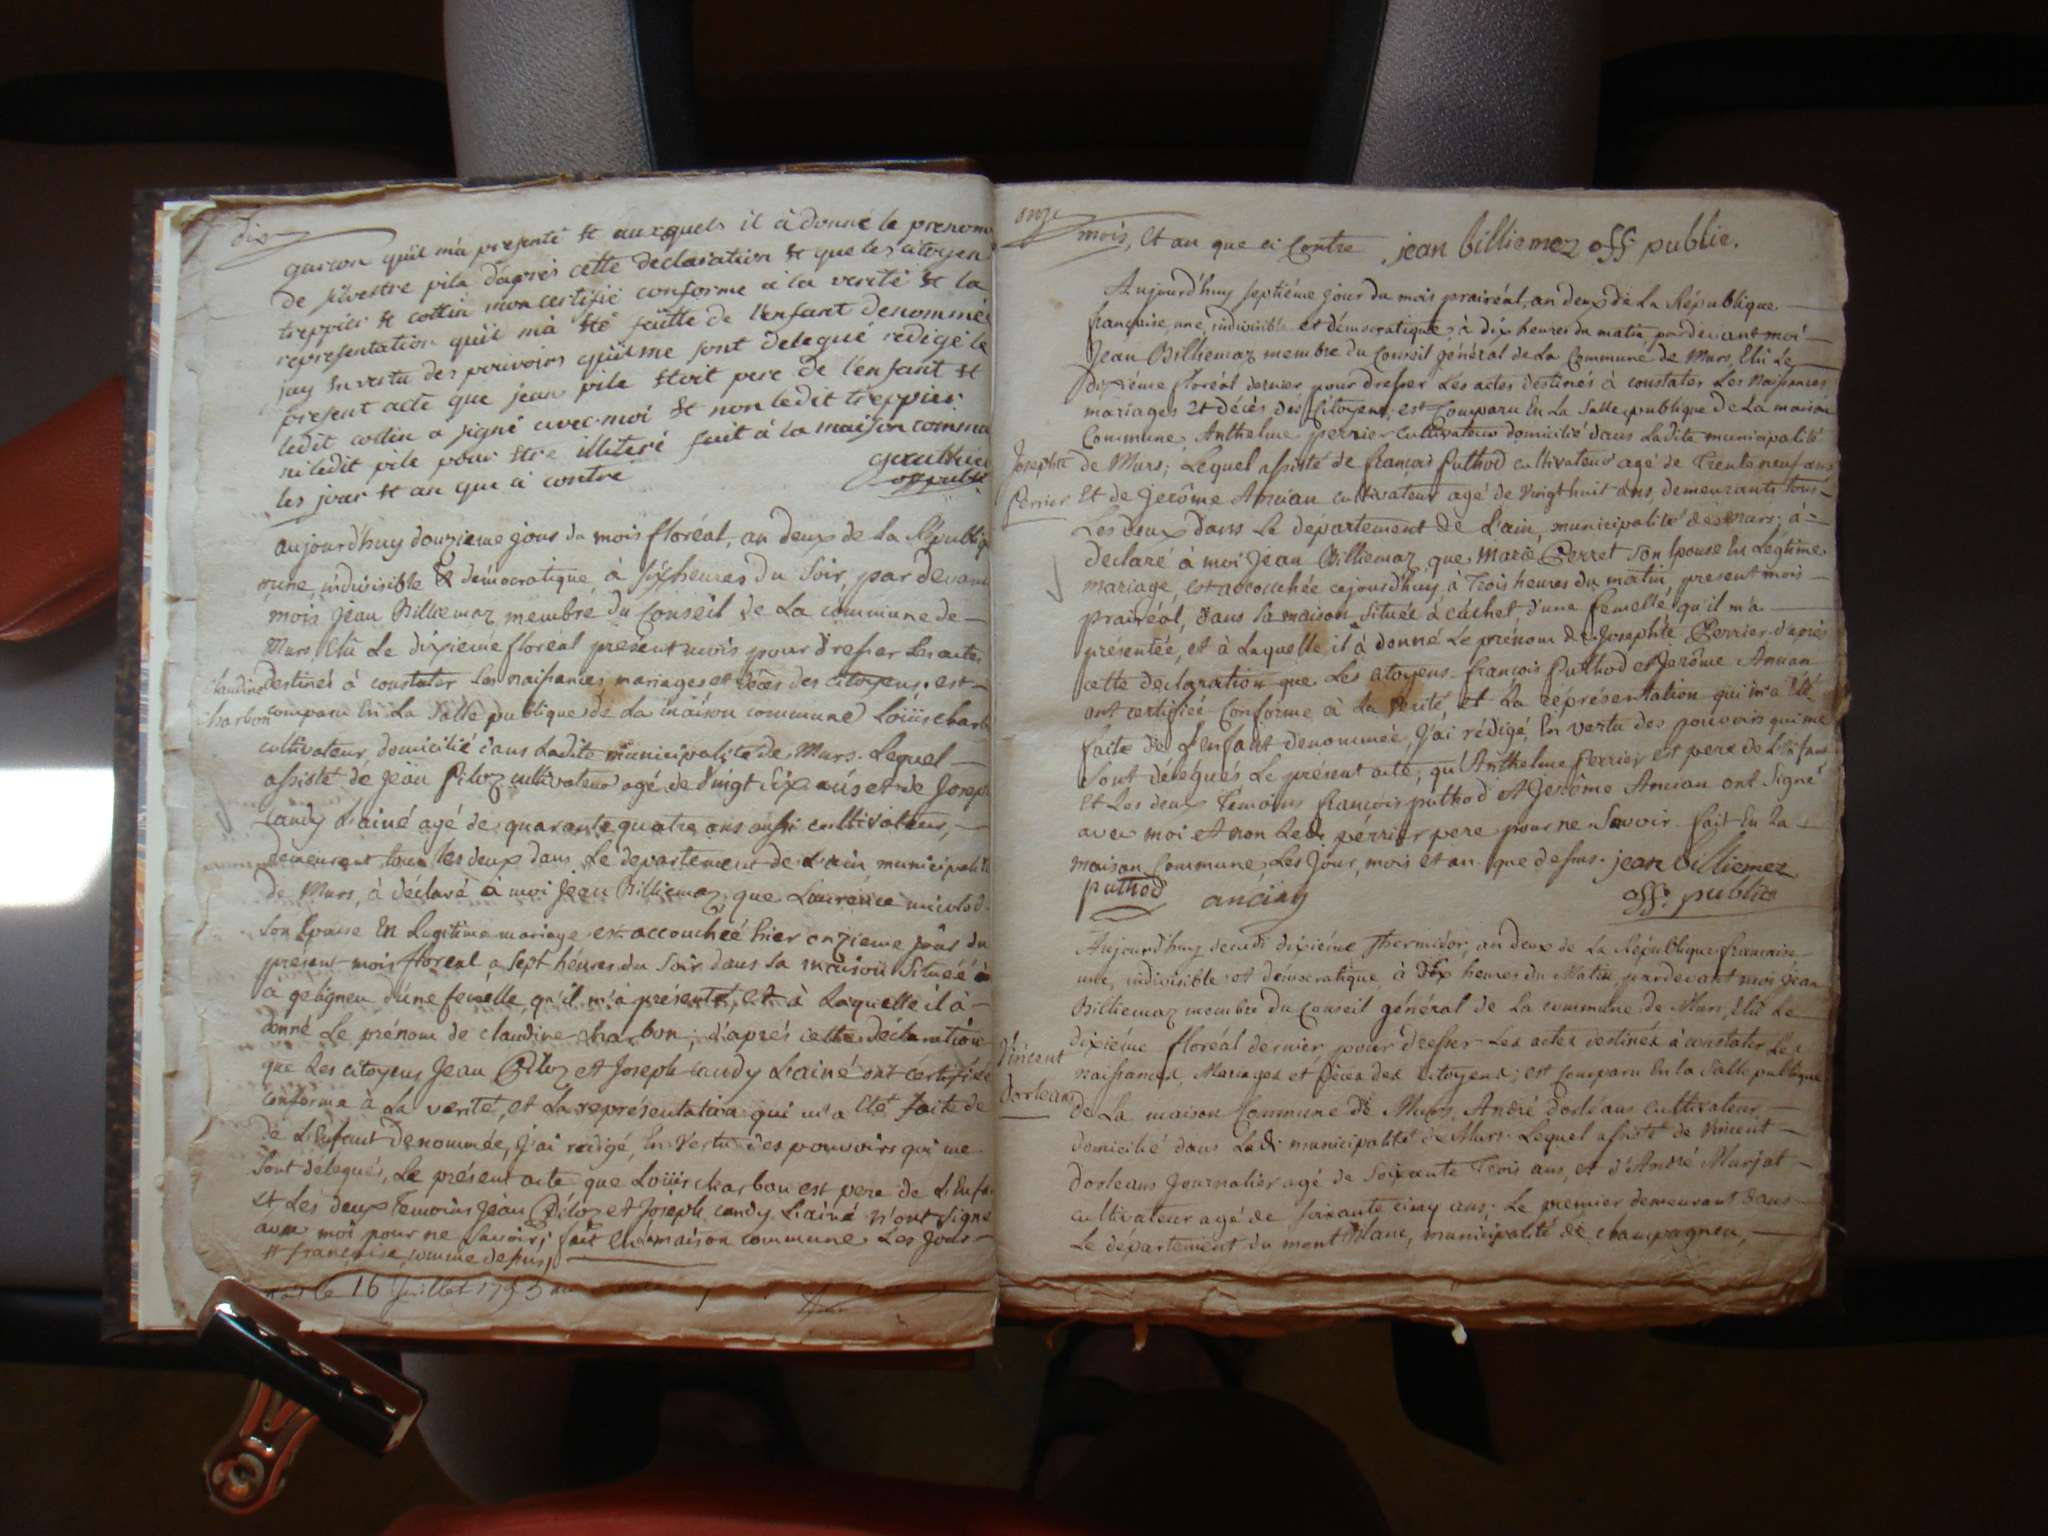 dix
garcon quil ma presenté et auxquels il à donné le prenom
de silvestre pila daprés cette declaration et que les citoyen
treppier et cottin mon certifié conforme a la verité et la
representation quil mà eté faitte de lenfant denommé
jay en vertu des pouvoirs quil me sont delegué redigé le
present acte que jean pile etoit pere de lenfant et
ledit cottin a signé avec moi et non ledit treppier
ni ledit pile pour etre illiteré fait à la maison commu
les jour et an que ci contre
off public
aujourd'huy douzieme jour du mois floréal, an deux de la Républiq
mune, indivisible & démocratique à six heures du Soir, par devant
mois jean Billiemaz membre du Conseil de La commune de
Murs, élu Le dixieme floréal present mois pour dresser Les actes
destinés à constater Les naissances, mariages et décès des citoyens, est
Claudine
charbon
comparu En La Salle publique de La maison commune Loüis charb
cultivateur, domicilié dans Ladite municipalité de Murs. Lequel
assisté de jean Piloz cultivateur agé de Vingt Six ans et de Joseph
candy L'ainé agé de quarante quatre ans aussi cultivateur,
demeurent tous les deux dans Le département de L'ain municipalité
de Murs, à déclaré à moi Jean Billiemaz, que Laurence
Son Epouse En Legitime mariage est accouchée hier onzieme jour du
present mois floréal a Sept heures du Soir dans Sa maison Située à
à geligneu d'une femelle, qu'il m'à présenté, et à Laquelle il à
donné Le prénom de claudine charbon, d'aprés cette déclaration
que Les citoyens Jean Piloz et Joseph candy L'ainé ont certifiée
conforme à La verité, et La représentation qui m'a été faite de
de L'enfant denommée, j'ai redigé, En Vertu des pouvoirs qui me
Sont délegués, Le présent acte que Loüis charbon est pere de L'enfa
et Les deux temoins jean Piloz et Joseph candy L'ainé n'ont signe
avec moi pour ne Savoir, fait En La maison commune Les Jour
# française, comme dessus,
le 16 juillet 1793
onze
mois, Et an que ci Contre jean billiemaz off public.
Aujourd'huy septiéme jour du mois prairéal, an deux de La République
française, une, indivisible et démocratique, à dix heures du matin, par devant moi
Jean Billiemaz membre du Conseil général de La Commune de Murs, Elû Le
dixiéme floréal dernier pour dresser Les actes destinés à constater Les naissances
mariages Et décès des Citoyens, est Comparu En La Salle publique de La maison
Commune, Anthelme perrier cultivateur domicilié dans Ladite municipalité
Josephte
Perrier
de Murs; Lequel assisté de françois Puthod cultivateur agé de Trente neuf ans
Et de Jerôme Ancian cultivateur agé de Vingt huit ans, demeurants tous
Les deux dans Le département de L'ain, municipalité de Murs; à
déclaré à moi Jean Billiemaz, que Marie Perret Son Epouse En Légitime
mariage, est accouchée cejourd'huy, à Trois heures du matin, present mois
prairéal, dans Sa maison Située à cuchet, d'une femelle qu'il m'a
présentée, et à Laquelle il à donné Le prénom de Josephte Perrier, d'aprés
cette declaration que Les citoyens françois Puthod et Jerôme Ancian
ont certifiée Conforme à La Verité et La représentation qui m'a été
faite de L'enfant denommée, j'ai rédigé, En vertu des pouvoirs qui me
Sont délégués Le présent acte, qu'Anthelme Perrier est pere de L'enfant
Et Les deux Temoins françois puthod et Jerôme Ancian ont Signé
avec moi et non Ledt. perrier pere pour ne Savoir. fait En La
maison Commune, Les Jour, mois et an que dessus. jean billiemaz
puthod ancian off. public
Aujourd'huy decadi dixiéme Thermidor, an deux de la République française
une, indivisible et démocratique, à dix heures du Matin, pardevant moi Jean
Billiemaz membre du Conseil général de La commune de Murs, Elû Le
dixiéme floréal dernier, pour dresser Les actes destinés à constater Les
Vincent
Dorleans
naissances, Mariages et Décès des citoyens; est Comparu En La Salle publique
de La maison Commune de Murs, André dorléans cultivateur,
domicilié dans Ladt. municipalité de Murs. Lequel assisté de Vincent
dorleans Journalier agé de Soixante Trois ans, et d'André Murjat
cultivateur agé de Soixante cinq ans; Le premier demeurant dans
Le département du mont Blanc, municipalité de champagneu,